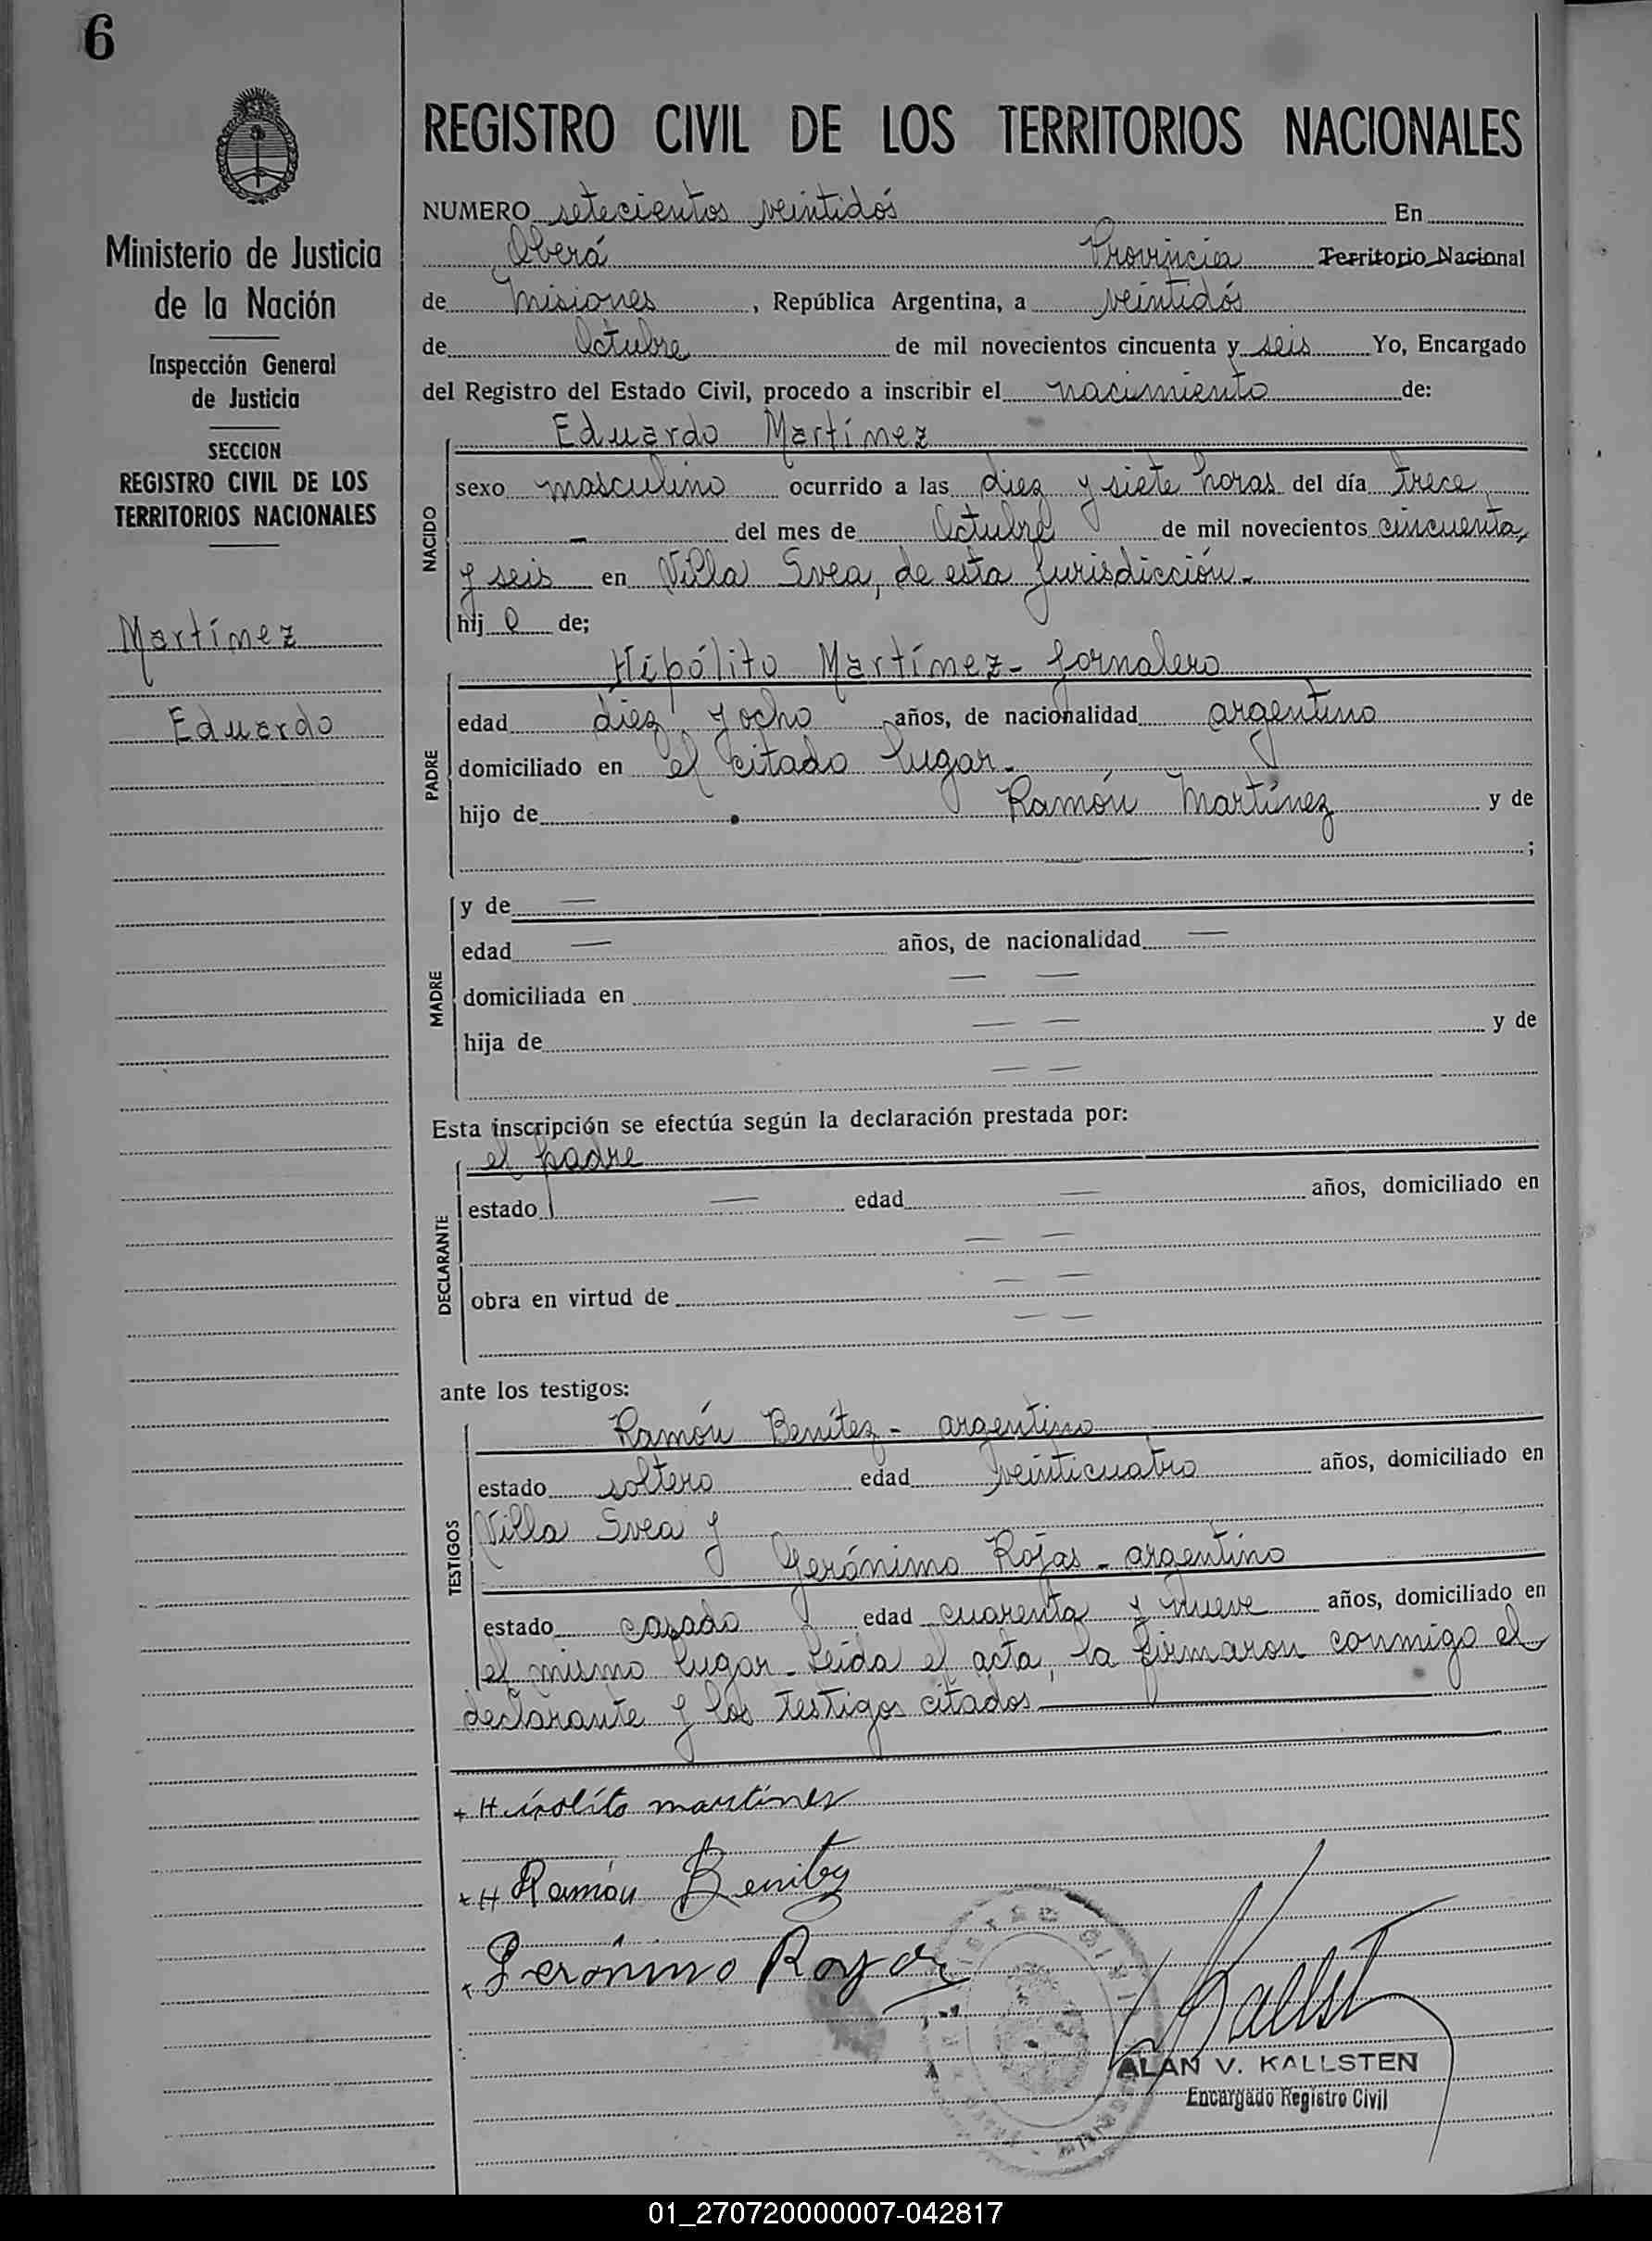 6
Ministerio de Justicia
de la Nación
Inspección General
de Justicia
SECCION
REGISTRO CIVIL DE LOS
TERRITORIOS NACIONALES
Martínez
Eduardo
REGISTRO CIVIL DE LOS TERRITORIOS NACIONALES
NUMERO setecientos veintidós En
Oberá Provincia Territorio Nacional
de Misiones, República Argentina, a veintidós
de Octubre de mil novecientos cincuenta y seis Yo, Encargado
del Registro del Estado Civil, procedo a inscribir el nacimiento de:
Eduardo Martínez
NACIDO
sexo masculino ocurrido a las diez y siete horas del día trece
— del mes de Octubre de mil novecientos cincuenta
y seis en Villa Svea, de esta Jurisdicción.-
hij o de;
Hipólito Martínez - Jornalero
PADRE
edad diez y ocho años, de nacionalidad argentino
domiciliado en el citado lugar.-
hijo de Ramón Martínez y de
— — ;
MADRE
y de —
edad — años, de nacionalidad —
domiciliada en — —
hija de — — y de
— —
Esta inscripción se efectúa según la declaración prestada por:
el padre
DECLARANTE
estado — edad — años, domiciliado en
— —
obra en virtud de — —
— —
ante los testigos:
Ramón Benítez - argentino
TESTIGOS
estado soltero edad veinticuatro años, domiciliado en
Villa Svea y
Gerónimo Rojas - argentino
estado casado edad cuarenta y nueve años, domiciliado en
el mismo lugar - Leída el acta, la firmaron conmigo el
declarante y los testigos citados
martines
Ramón Benitez
Gerónimo Royas
Kallst
ALAN V. KALLSTEN
Encargado Registro Civil
01_270720000007-042817